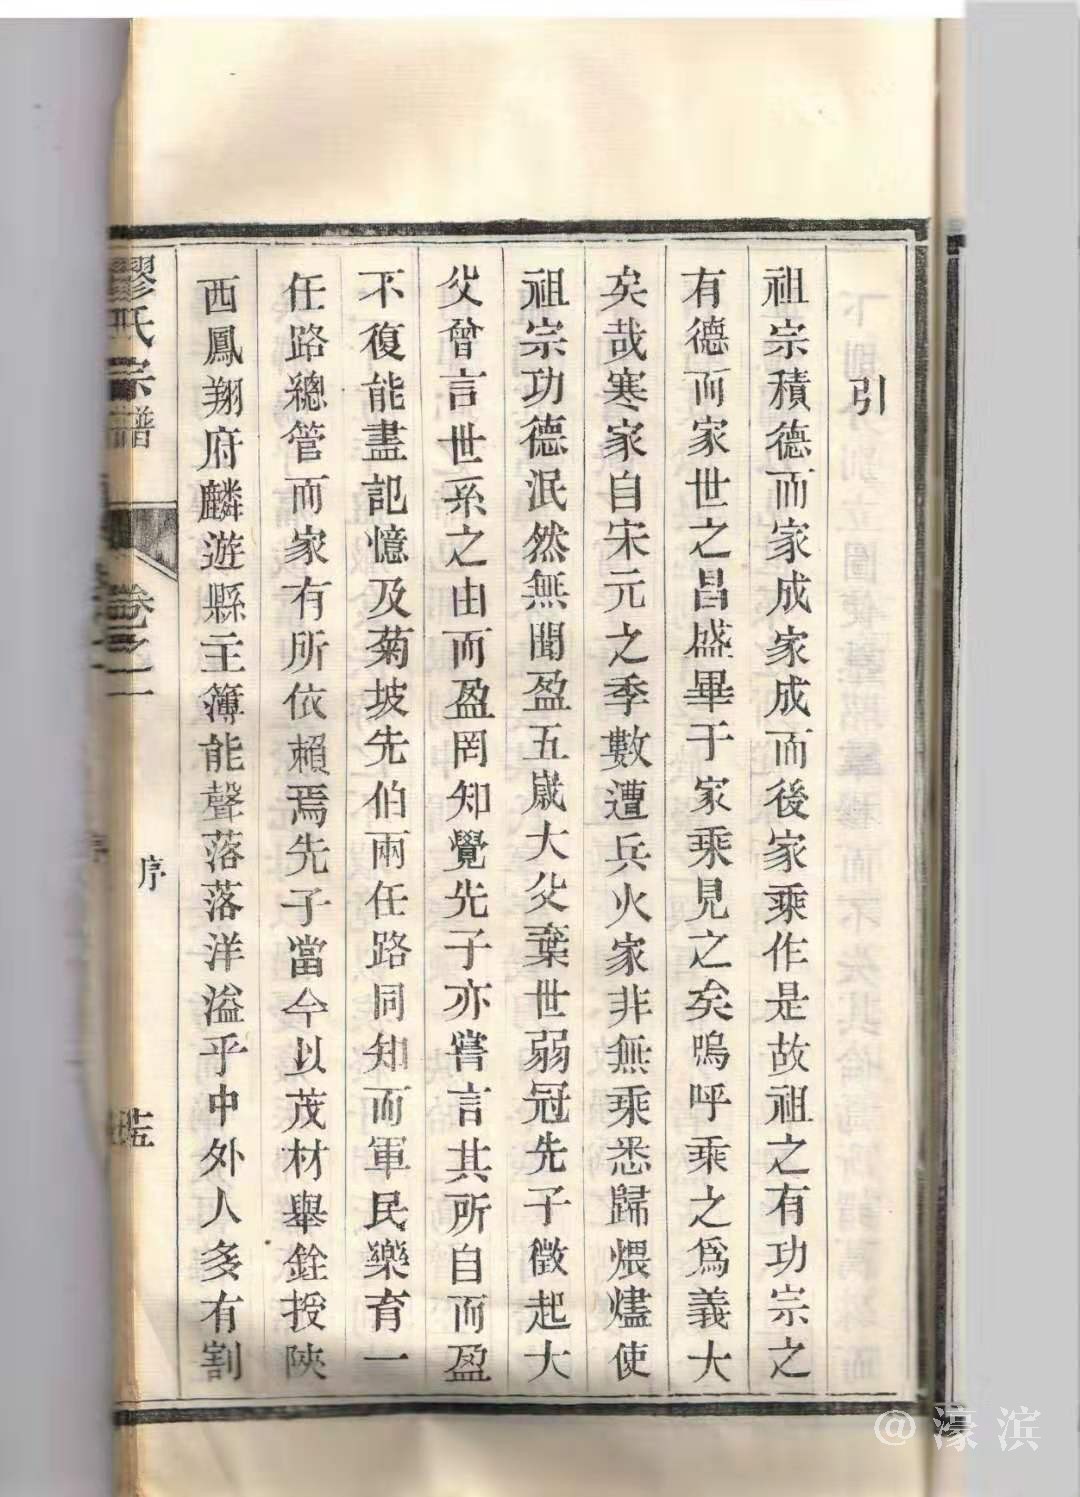 引
祖宗積德而家成家成而後家乘作是故祖之有功宗之
有德而家世之昌盛畢于家乘見之矣嗚呼乘之爲義大
矣哉寒家自宋元之季數遭兵火家非無乘悉歸煨燼使
祖宗功德泯然無聞盈五歲大父棄世弱冠先子徵起大
父曾言世系之由而盈罔知覺先子亦嘗言其所自而盈
不復能盡記憶及菊坡先伯兩任路同知而軍民樂育一
任路總管而家有所依賴焉先子當今以茂材舉銓授陝
西鳳翔府麟遊縣主簿能聲落落洋溢乎中外人多有割
繆氏宗譜
卷之一
序
@濠滨